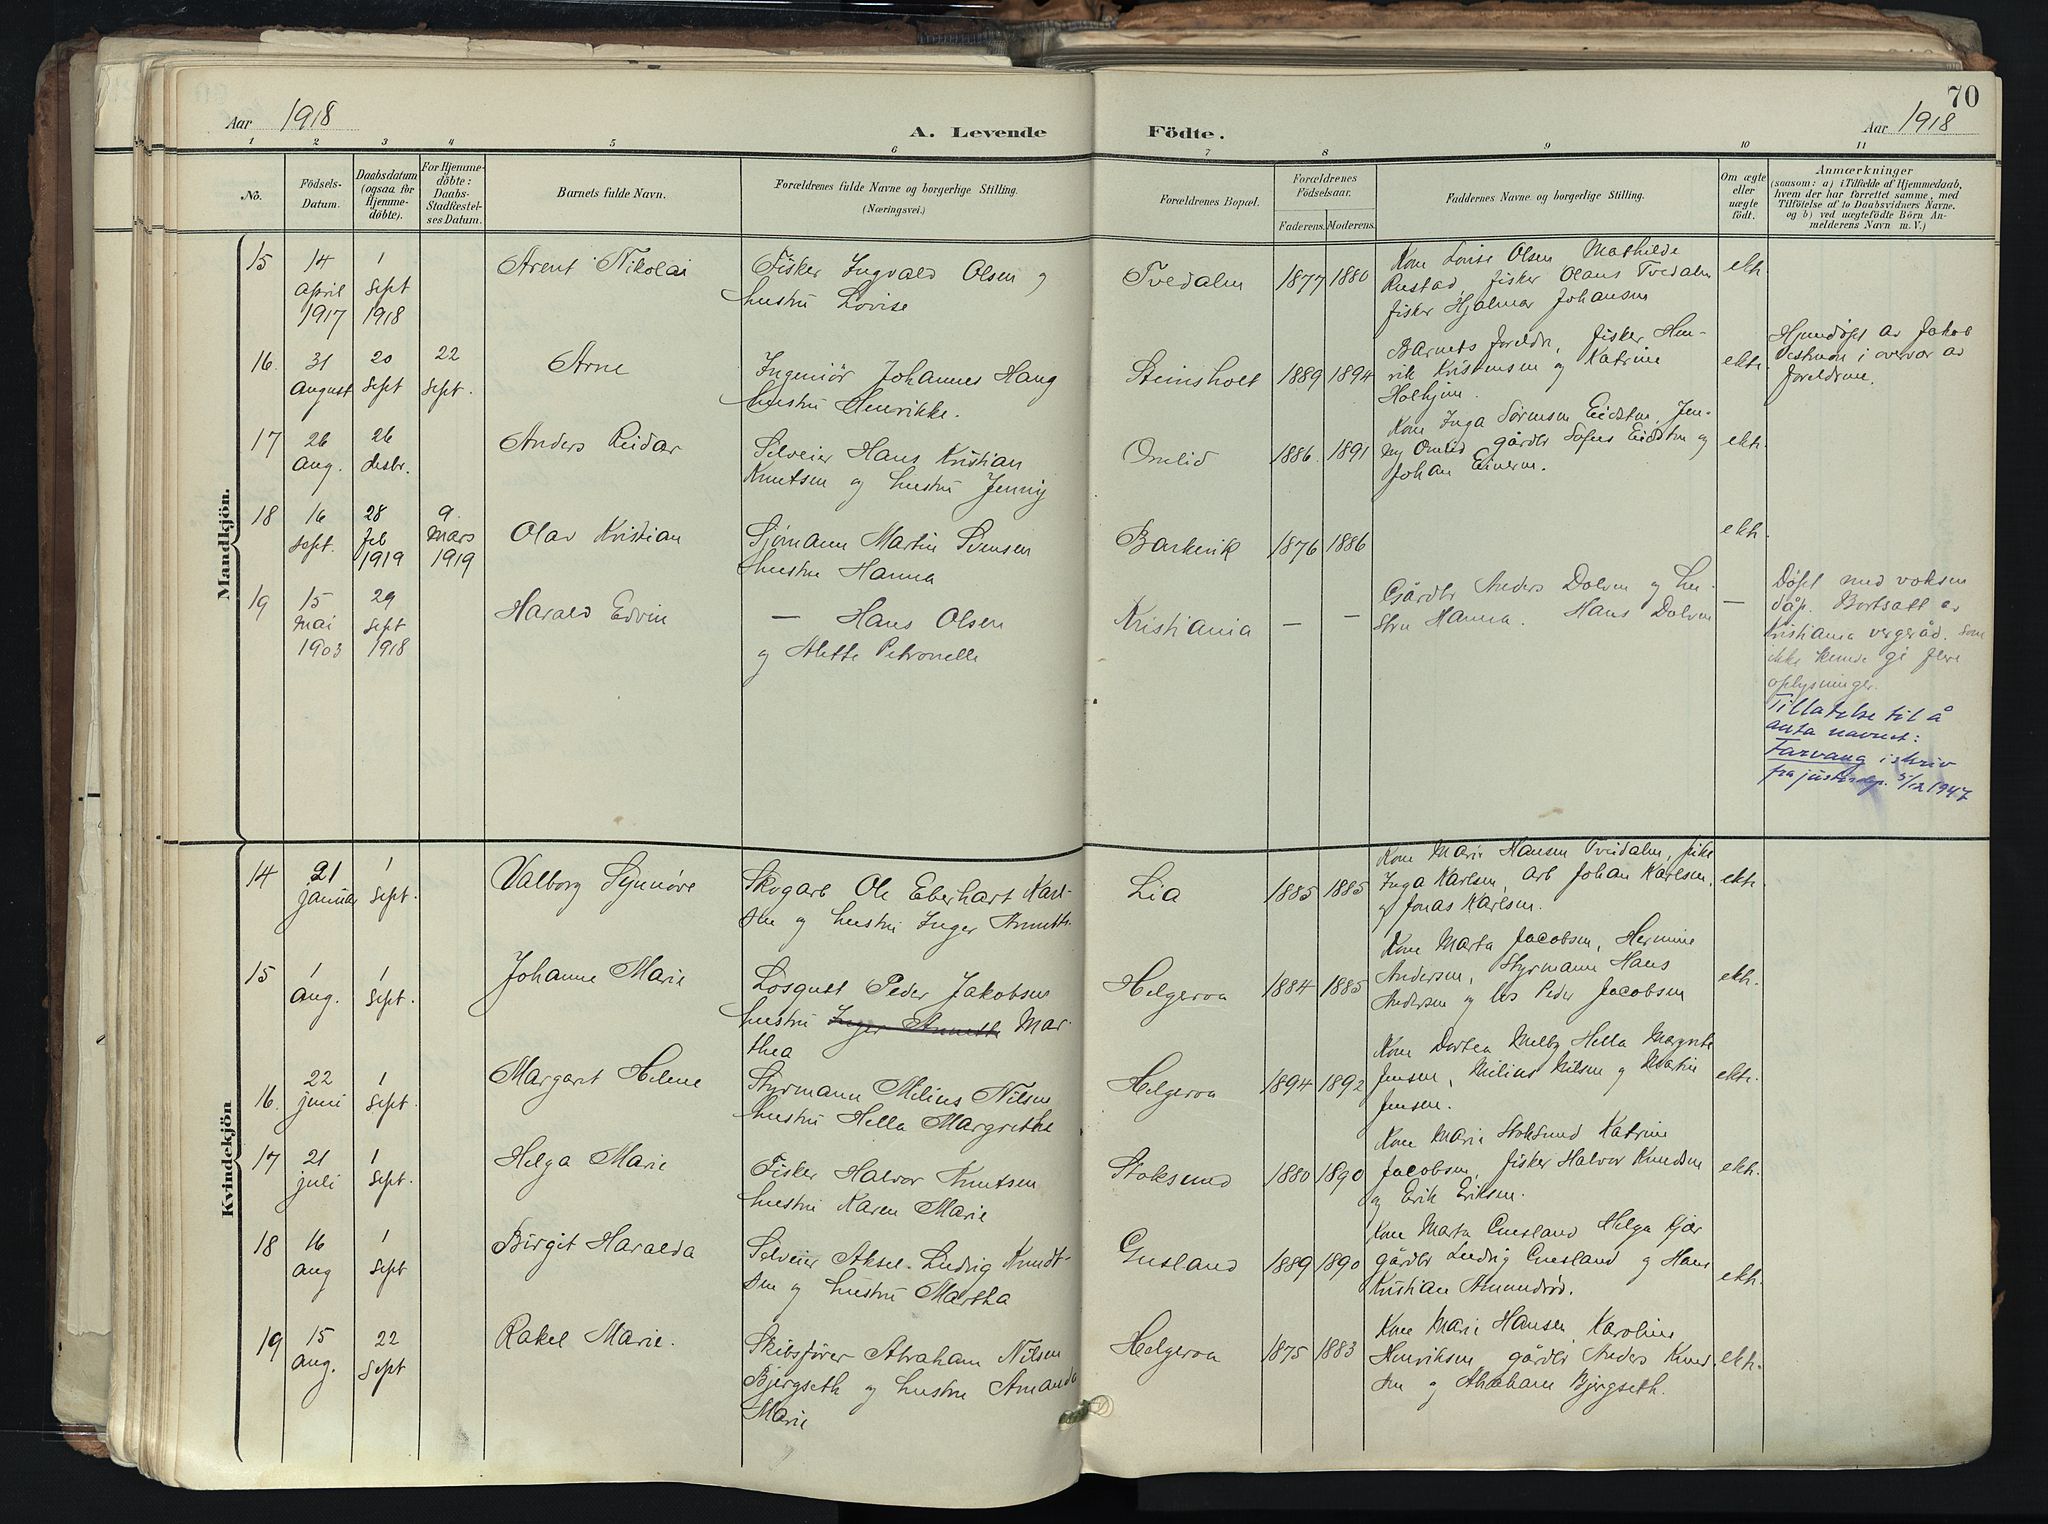 Aar 1918
A. Levende Födte.
70
Aar 1918
1 2 3 4 5 6 7 8 9 10 11
No.
Födsels-
Datum.
Daabsdatum
(ogsaa for
Hjemme-
döbte).
For Hjemme-
döbte:
Daabs-
Stadfæstel-
ses Datum.
Barnets fulde Navn.
Forældrenes fulde Navne og borgerlige Stilling.
(Næringsvei.)
Forældrenes Bopæl.
Forældrenes
Födselsaar.
Faderens. Moderens.
Faddernes Navne og borgerlige Stilling.
Om ægte
eller
uægte
födt.
Anmærkninger
(saasom: a) i Tilfælde af Hjemmedaab,
hvem der har forrettet samme, med
Tilföielse af to Daabsvidners Navne.
og b) ved uægtefödte Börn An-
melderens Navn m. V.)
Mandkjön.
15
14
april
1917
1
Sept
1918
Arent Nikolai
Fisker Ingvald Olsen og
hustru Lovise
Tvedalen
1877 1880
Kone Lovise Olsen Mathilde
Rustad, fisker Olaus Tvedalen
fisker Hjalmar Johansen
ekte
16.
31
August
20
Sept
22
Sept.
Arne
Ingeniör Johannes Haug
hustru Henrikke.
Steinsholt
1889 1894
Barnets foreldre, fisker Hen-
rik Kristensen og Katrine
ekte.
Hjemdöpt av Jakob
Vestmoen i overvær av
foreldrene.
17
26
Aug.
26
desbr.
Anders Reidar
Selveier Hans Kristian
Knutsen og hustru Jenny
Omlid
1886. 1891
Kone Inga Sörensen Eidsten, Jen-
ny Omlid gårdbr Sofus Eidsten og
Johan
ekte.
18
16
sept.
28
Feb
1919
9.
Mars
1919
Olav Kristian
Sjømann Martin Svensen
hustru Hanna
Barkevik
1876 1886
ekte.
19
15
mai
1903
29
sept
1918
Harald Edvin
— Hans Olsen
og Alette Petronelle
Kristiania
— —
Gårdbr Anders Dolven og hu-
stru Hanna. Hans Dolven
—
Döpt med voksen
dåp. Bortsatt av
Kristiania vergeråd. som
ikke kunde gi flere
oplysninger.
Tillatelse til å
anta navnet:
Farvang i skriv
fra justisdep. 5/12 1947
Kvindekjön
14
21
januar
1
sept.
Valborg Synnöve
Skogarb Ole Eberhart Karl-
sen og hustru Inger Annette.
Lia
1885 1885
Kone Marie Hansen Tveidalen, pike
Inga Karlsen, arb Johan Karlsen,
og Jonas Karlsen.
ekte.
15
1
Aug.
1
sept.
Johanne Marie
Losgutt Peder Jakobsen
hustru Inger Annette Mar-
thea
Helgeroa
1884 1885
Kone Marta Jacobsen, Hermine
Andersen, Styrmann Hans
Andersen og los Peder Jacobsen
ekte.
16.
22
juni
1
sept.
Margaret Helene
Styrmann Milius Nilsen
hustru Hella Margrethe
Helgeroa
1894 1892
Kone Dortea Melby Hella Margrete
Jensen, Milius Nilsen og Martin
Jensen.
ekte.
17
21
juli
1
sept.
Helga Marie
Fisker Halvor Knutsen
hustru Karen Marie
Stoksund
1880 1890
Kone Marie Stoksund Katrine
Jacobsen, fisker Halvor Knudsen
og Erik Eriksen.
ekte.
18
16
Aug
1
Sept
Birgit Haralda
Selveier Aksel Ludvig Knudt-
sen og hustru Martha
Gusland
1889 1890
Kone Marta Gusland Helga Kjær
gårdbr Ludvig Gusland og Hans
Kristian Amundröd.
ekte.
19
15
Aug.
22
Sept
Rakel Marie.
Skibsfører Abraham Nilsen
Bjergseth og hustru Amanda
Marie
Helgeroa
1875 1883
Kone Marie Hansen, Karoline
Henriksen, gårdbr Anders Knud
sen og Abraham Bjergseth.
ekte.